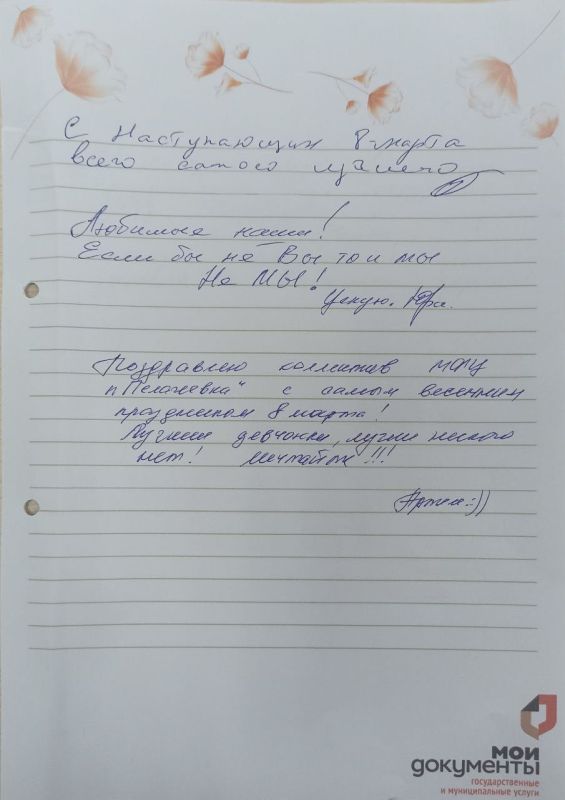 С Наступающим 8 марта
всего самого лучшего
Любимые наши!
Если бы не Вы то и мы
Не МЫ!
Целую. Юра.
Поздравляю коллектив МФЦ
"Пелагеевка" с самым весенним
праздником 8 марта!
Лучшие девчонки, лучше никого
нет! Мечтайте!!!
Артем :))
мои
документы
государственные
и муниципальные услуги